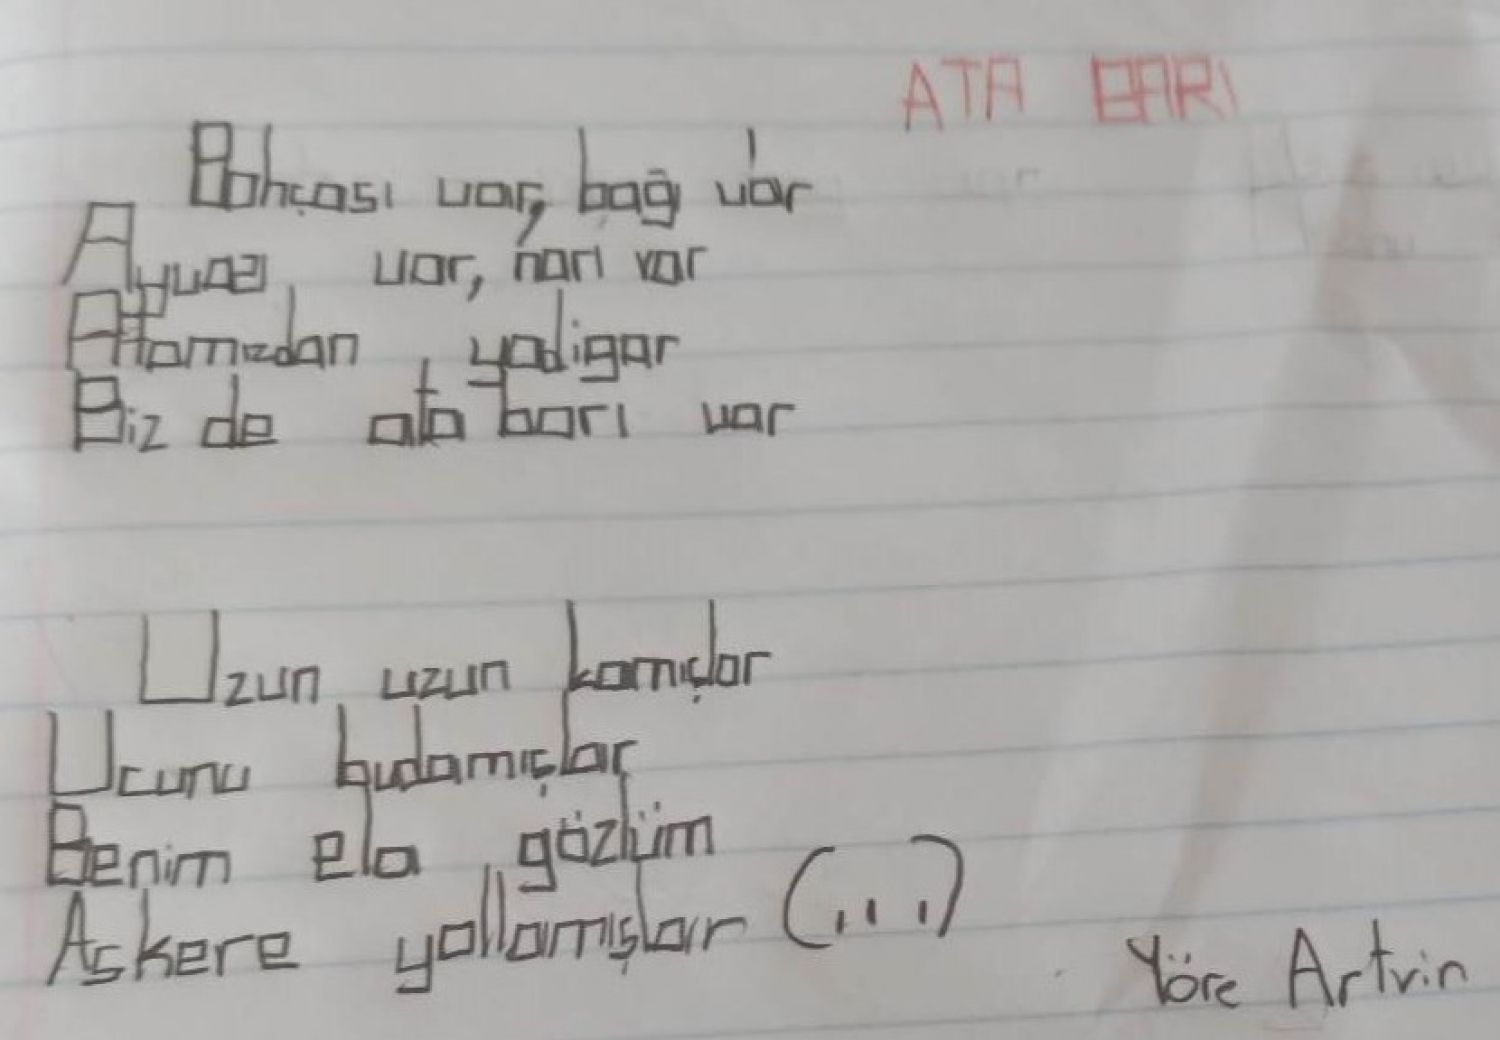 ATA BARI
Bohçası var, bağ var
Ayvaz var, narı var
Atamızdan yadigar
Biz de ata barı var
Uzun uzun kamışlar
Ucunu budamışlar
Benim ela gözlüm
Askere yollamışlar (...)
Yöre Artvin